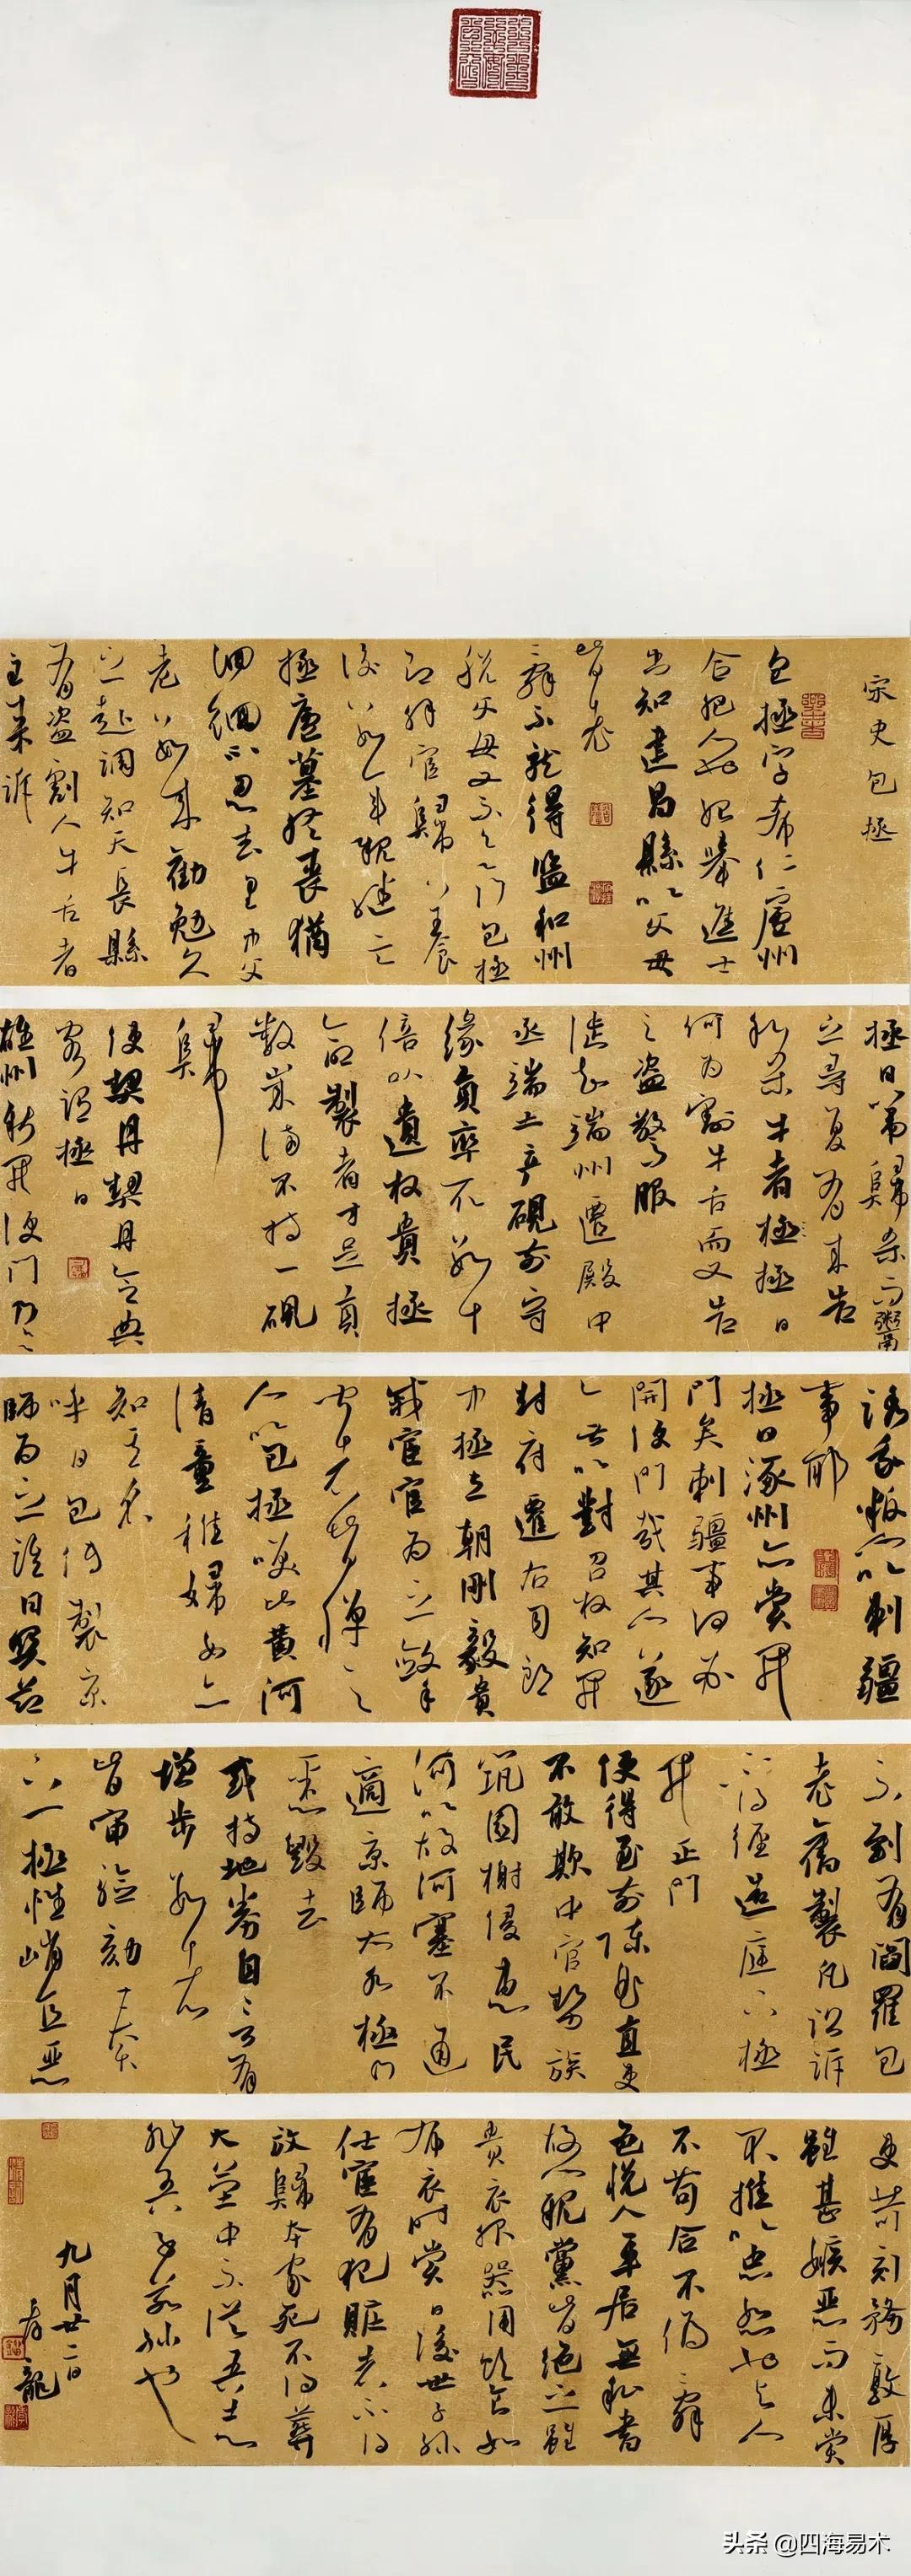 宋史包拯
包拯字希仁廬州
合肥人也始舉進士
出知建昌縣以父母
皆老
辭不就得監和州
稅父母又不欲行包拯
即解官歸養
後數年親繼亡
拯廬墓終喪猶
徘徊不忍去里中父
老數來勸勉久
之赴調知天長縣
有盜割人牛舌者
主來訴
拯曰第歸殺而鬻
之尋復有來告
私殺牛者拯曰
何為割牛舌而又告
之盜驚服
徙知端州遷殿中
丞端土產硯前守
緣貢率取數十
倍以遺權貴拯
命製者才足貢
數歲滿不持一硯
歸
使契丹契丹令典
客謂拯曰
雄州新開便門乃欲
誘我叛人以刺疆
事耶
拯曰涿州亦嘗開
門矣刺疆事何必
開便門哉其人遂
無以對召權知開
封府遷右司郎
中拯立朝剛毅貴
戚宦官為之斂手
聞者皆憚之
人以包拯笑比黃河
清童稚婦女亦
知其名
呼曰包待製京
師為之語曰關節
不到有閻羅包
老舊製凡訟訴
不得徑造庭下拯
開正門
使得至前陳曲直吏
不敢欺中官勢族
築園榭侵惠民
河以故河塞不通
適京師大水拯乃
悉毀去
或持地券自言有
增步數者
皆審驗劾奏
之拯性峭直惡
吏苛刻務敦厚
雖甚嫉惡而未嘗
不推以忠恕也與人
不苟合不偽辭
色悅人平居無私書
故人親黨皆絕之雖
貴衣服器用飲食如
布衣時嘗曰後世子孫
仕宦有犯贓者不得
放歸本家死不得葬
大塋中不從吾志
非吾子若孫也
九月廿二日
頭条 @四海易木